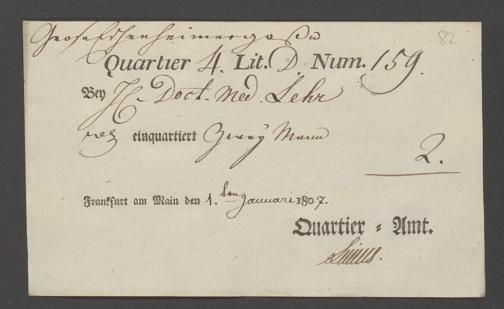 Große Eschenheimergaße
Quartier 4. Lit. D. Num. 159.
Bey H. Doct. Med. Lehr
einquartiert Zwey Mann
2.
Frankfurt am Main den 1.ten Januari 1807.
Quartier = Amt.
82